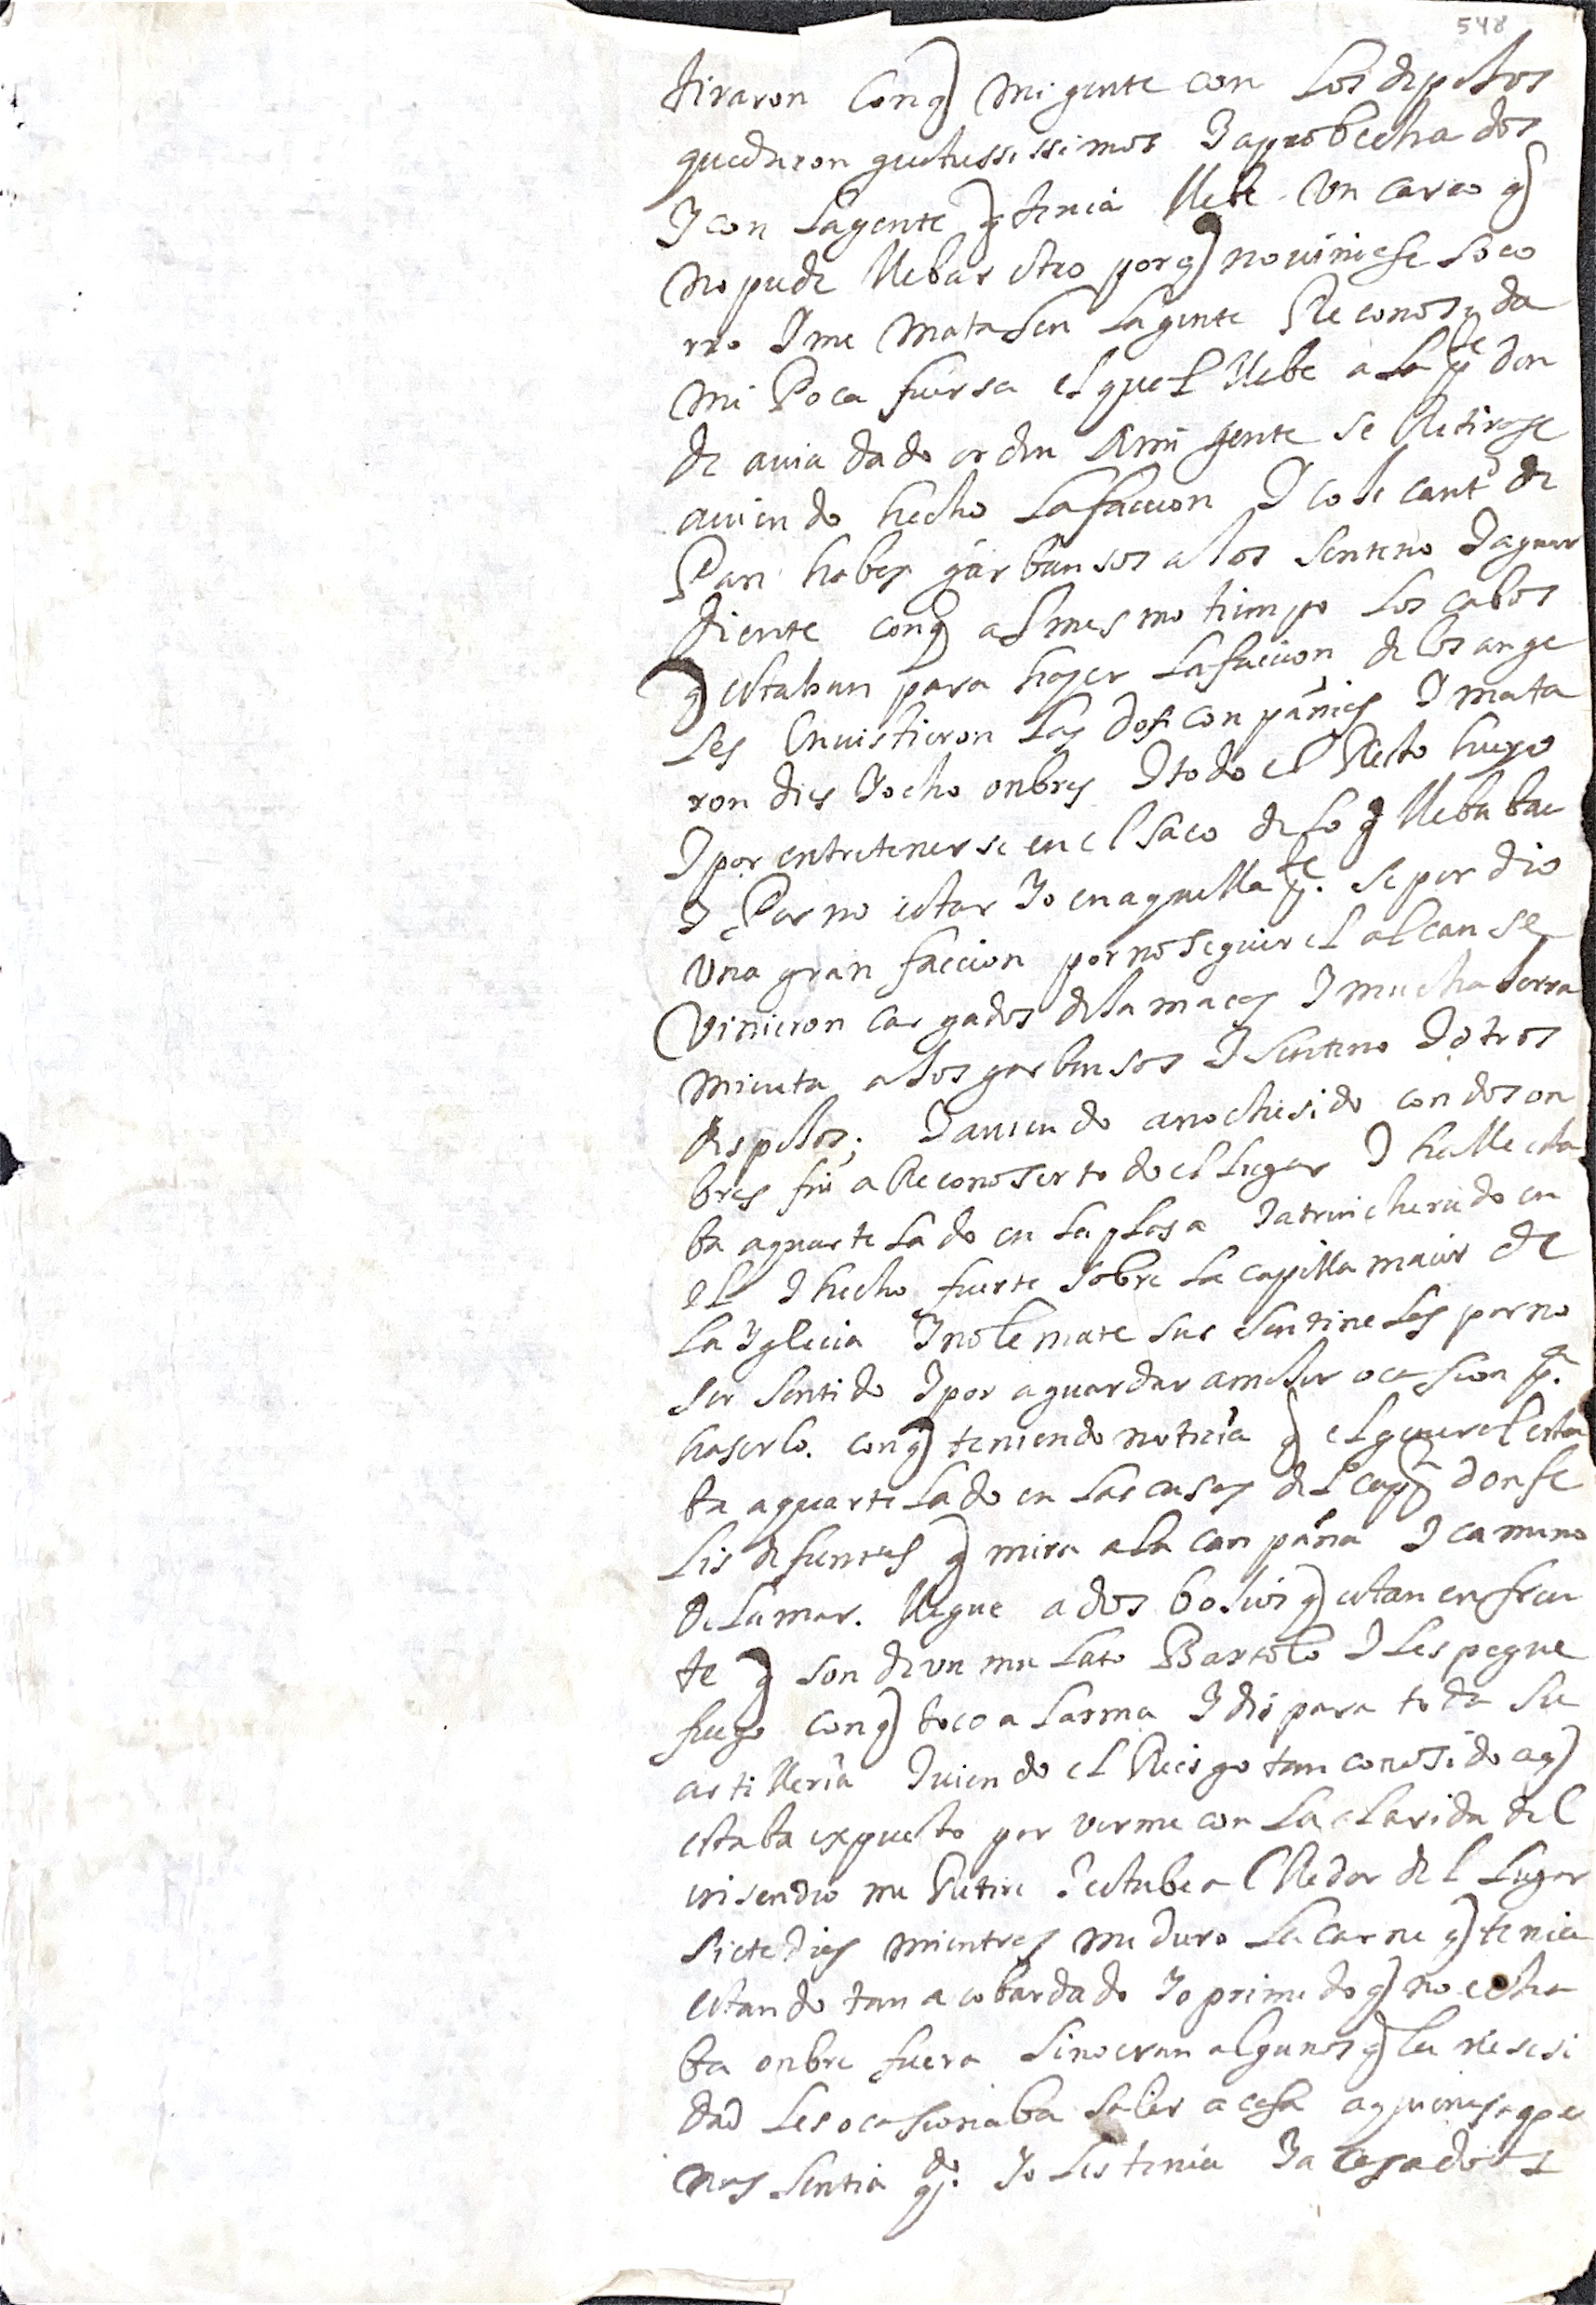 548
tiraron Conq mi gente con Los depoJos
quedaron gustussissimos I aprobecha dos
I con La gente q tenia lleve Un carro q
no pude llebar otro porq no uiniese soco
rro I me mata Sen La gente Reconosida
mi Poca fuersa el qual llebe a La pte don
de auia dado orden Ami gente se Retirase
auiendo hecho La faccion I coJi cantd de
Pan habas garbansos aJos senteno I aguar
diente conq al mesmo tiempo Los cabos
q estaban para hazer La faccion de Los ange
Les Enuistieron Las dos conpañias I mata
ron dies Iocho onbres I todo el Resto huyo
I por entretenerse en el saco de Lo q llebaban
I Por no estar Yo en aquella pte. se perdio
Una gran faccion por no seguir el alcanse
Vinieron cargados de Tamaras I mucha herra
mienta aJos garbansos I senteno I otros
despoJos; I auiendo anochesido con dos on
bres fui a Reconoser todo el Lugar I halle esta
ba aquarteLado en La pLasa I atrincherado en
el I hecho fuerte sobre La capilla maior de
La Yglecia I no Le mate sus SentineLas por no
ser sentido I por aguardar a meJor ocassion pa.
haserLo. conq teniendo noticia q eL general esta
ba aquarteLado en Las casas deL capn don fe
Lis de fuentes q mira a La canpaña I camino
de La mar. llegue a dos bohios q estan enfren
te q son de un muLato BartoLo I Les pegue
fuego conq toco aLarma I dispara toda su
artilleria I uiendo eL Riesgo tan conosido a q
estaba expuesto por verme con La cLarida deL
insendio me Retire I estube aL Redor deL Lugar
siete dias mientras me duro La carne q tenia
estando tan acobardado Io primido q no echa
ba onbre fuera Sino eran aLgunos q La nesesi
dad Les ocasionaba saLir a casa a quienes ape
nas sentia qdo. Yo Les tenia Ya casados I